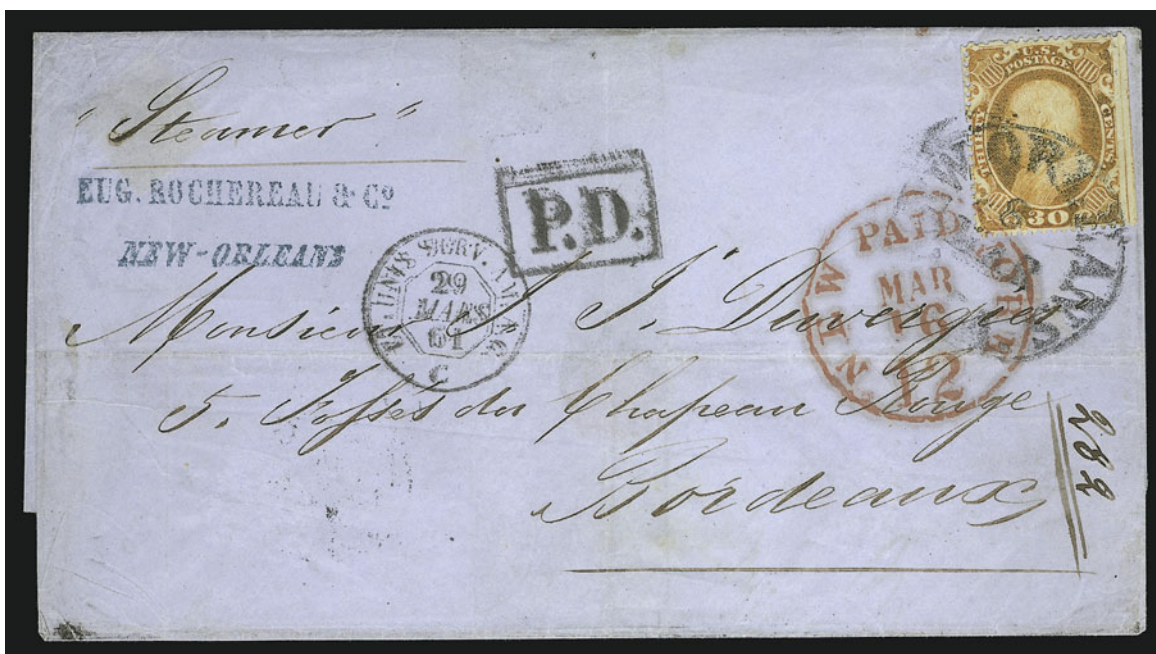 "Steamer"
EUG. ROCHEREAU & Cº
NEW-ORLEANS
P.D.
ETUNIS SERV. AM.
29
MARS
61
C
U.S.
POSTAGE
THIRTY
CENTS.
30
NEW YORK
PAID
MAR
16
12
Monsieur J. J. Duvergier
5. Fossés du Chapeau Rouge
Bordeaux
202